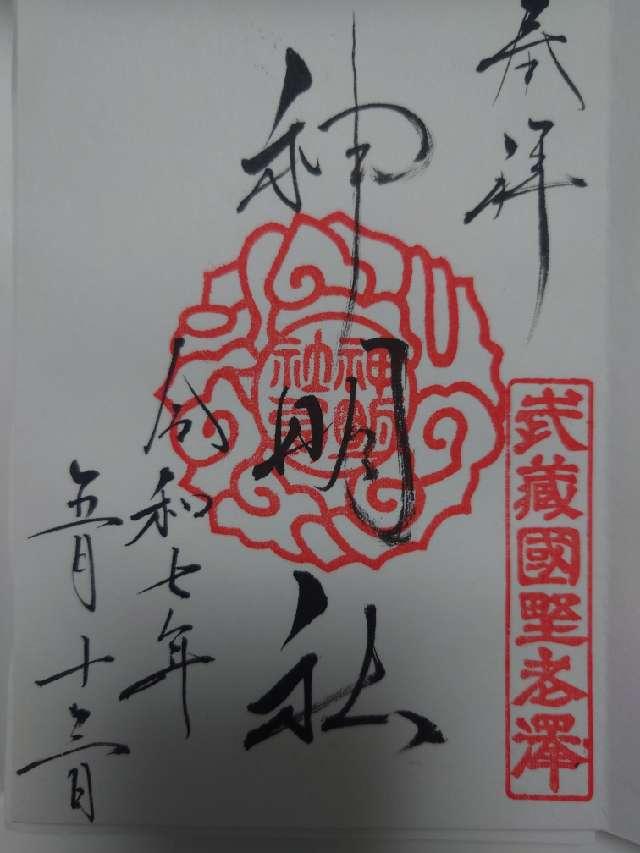 奉拝
武蔵國野老澤
神明社
神明
社
令和七年
五月十三日